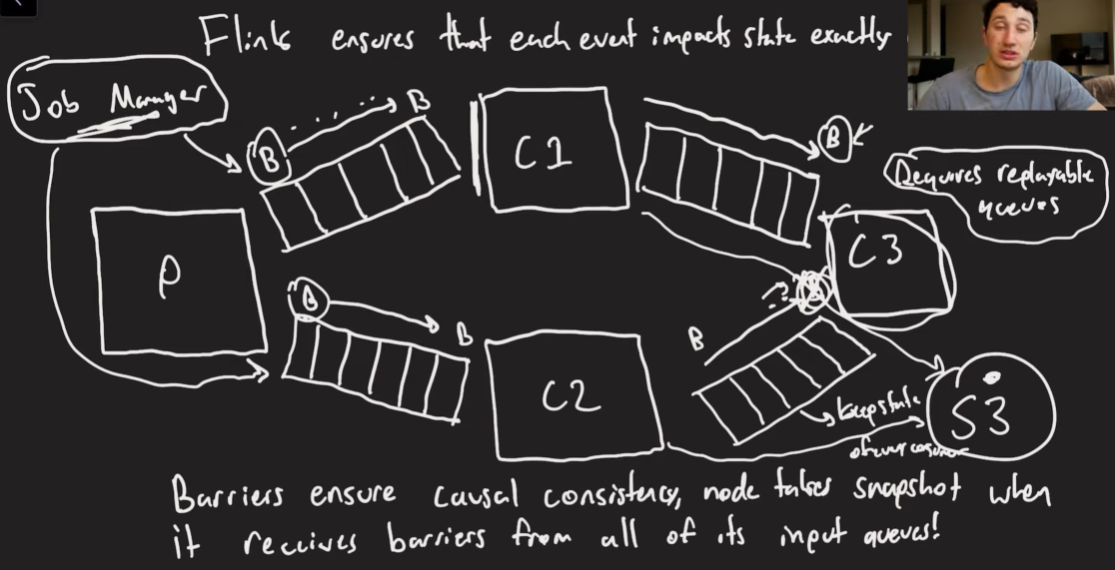 Flink ensures that each event impacts state exactly
Job Manager
B
B
C1
B
Requires replayable
queues
P
C3
B
B
B
C2
S3
Keep state
Barriers ensure causal consistency, node takes snapshot when
it receives barriers from all of its input queues!